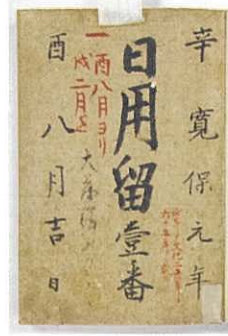 辛 寛保元年
日用留壹番
一 酉八月ヨリ
戌二月迄
酉八月吉日